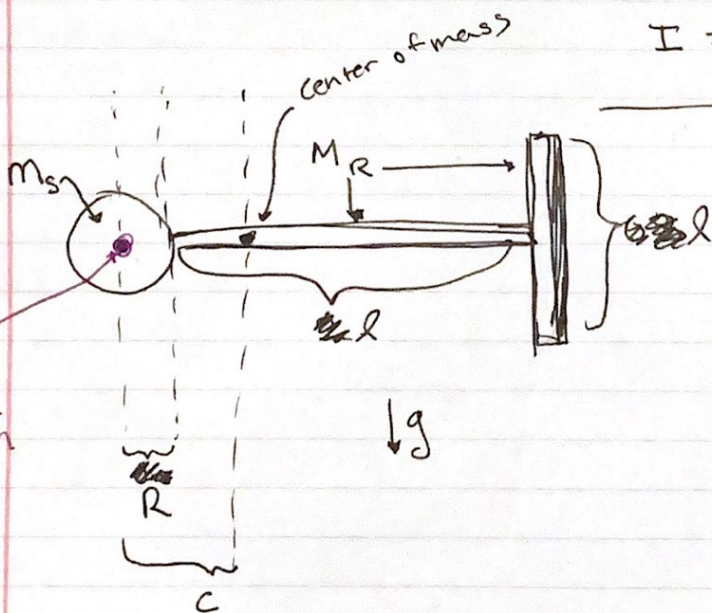 I
center of mass
Ms
MR
l
l
g
R
C